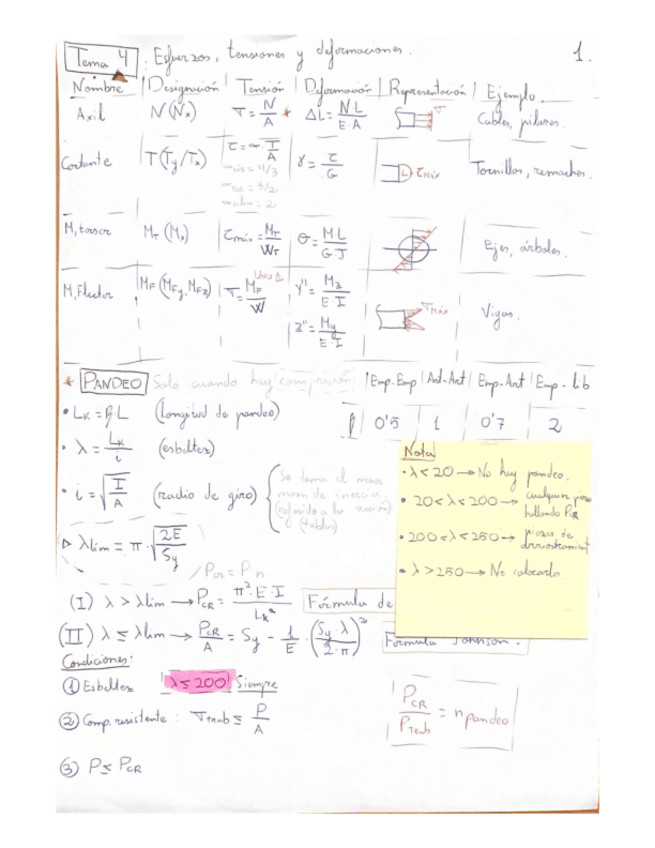 Tema 4. Esfuerzos, tensiones y deformaciones. 1.
Nombre | Designación | Tensión | Deformación | Representación | Ejemplo
Axil N(Nx) σ = N/A * ΔL = N·L/E·A σ Cables, pilares.
Cortante T(Ty/Tz) τ = ∝·T/A γ = τ/G τmáx Tornillos, remaches.
∝cir = 4/3
∝rec = 3/2
= 2
M, torsor MT (Mx) τmáx = MT/WT θ = M·L/G·J Ejes, árboles.
M, Flector MF (MFy, MFz) σ = MF/W y'' = Mz/E·I σmáx Vigas.
z'' = My/E·I
* PANDEO Solo cuando hay compresión | Emp-Emp | Art-Art | Emp-Art | Emp-lib
β | 0'5 | 1 | 0'7 | 2
• LK = β·L (longitud de pandeo)
• λ = LK/i (esbeltez)
• i = √(I/A) (radio de giro)
Se toma el menor
mom de inercia
(referido a la sección)
(tablas)
▷ λlim = π·√(2E/Sy)
Nota
• λ<20 → No hay pandeo.
• 20<λ<200 → cualquier pieza
hallando PCR
• 200<λ<250 → piezas de
• λ>250 → No colocarlo.
Pcr = P·n
(I) λ > λlim → PCR = π²·E·I/LK² Fórmula de
(II) λ ≤ λlim → PCR/A = Sy - 1/E·(Sy·λ/2·π)² Fórmula Johnson.
Condiciones:
① Esbeltez λ≤200 Siempre
② Comp. resistente: σtrab ≤ P/A
PCR/PTrab = n pandeo
③ P ≤ PCR